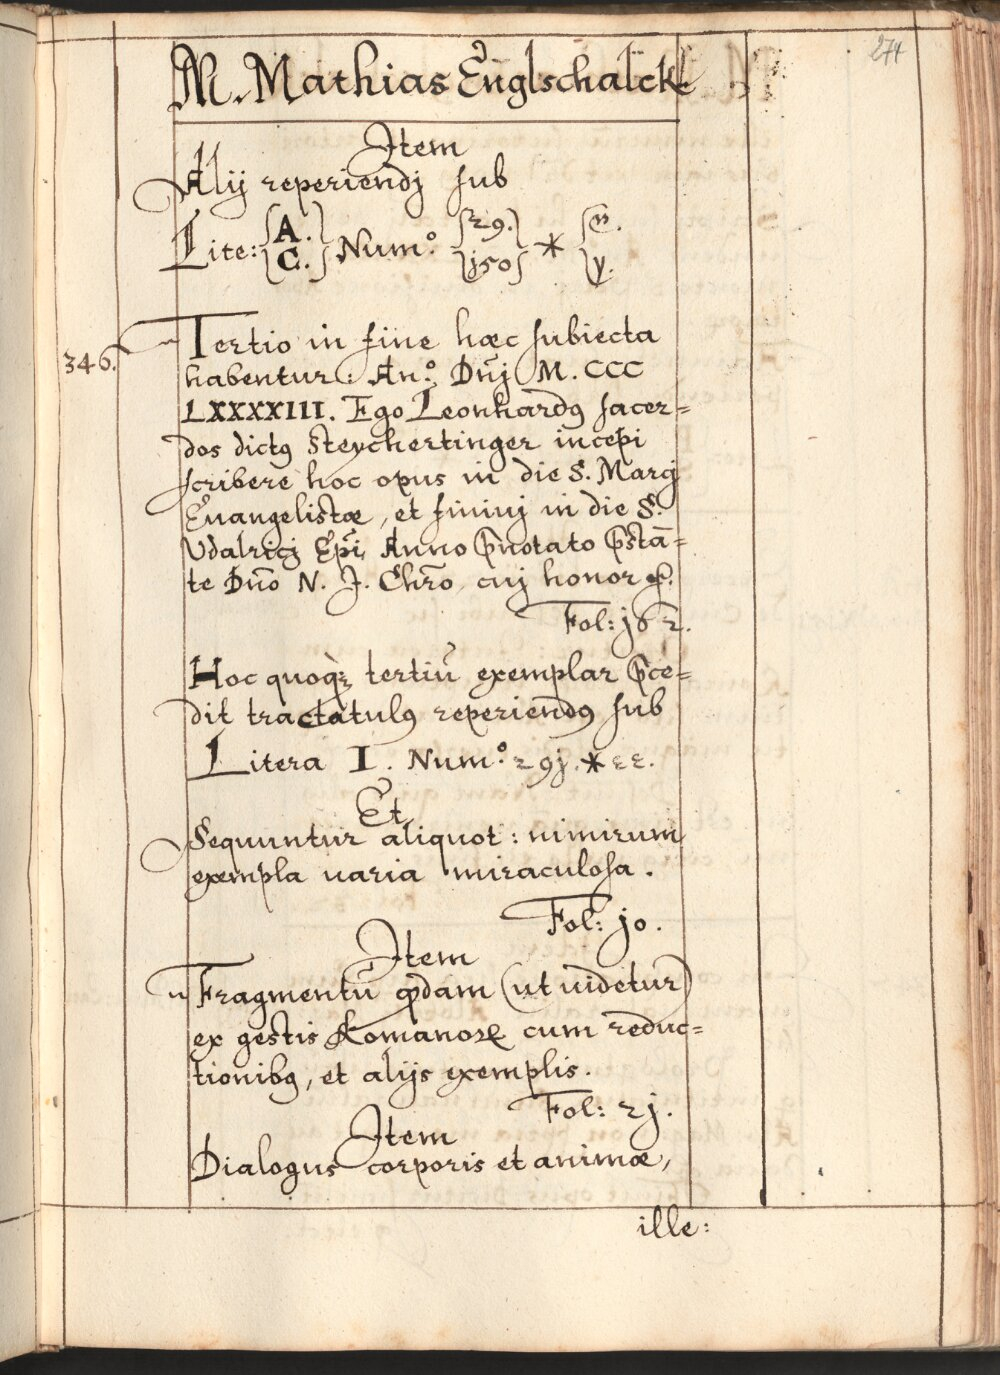 271
M. Mathias Englschalckh
Item
Alij reperiendj sub
Lite: {A. C.} Num.º {29. 150} * {n. y.}
346. Tertio in fine hæc subiecta
habentur: An.º Dn̄j M. CCC
LXXXXIII. Ego Leonhardꝰ sacer=
dos dictꝰ Steychertinger incepi
scribere hoc opus in die S. Marcj
Euangelistæ, et finiuj in die S.
Vdalricj Ep̄i, Anno p̄notato p̄stā=
te Dn̄o N. J. Chr̄o, cuj honor &.
Fol: j62.
Hoc quoqꝫ tertiū exemplar p̄ce=
dit tractatulꝰ reperiendꝰ sub
Litera I. Num.º 29j. * εε.
Et
Sequuntur aliquot: nimirum
exempla uaria miraculosa.
Fol: jo.
Item
Fragmentū qdam (ut uidetur)
ex gestis Romanoꝝ cum reduc=
tionibꝰ, et alijs exemplis.
Fol: 2j.
Item
Dialogus corporis et animæ,
ille: